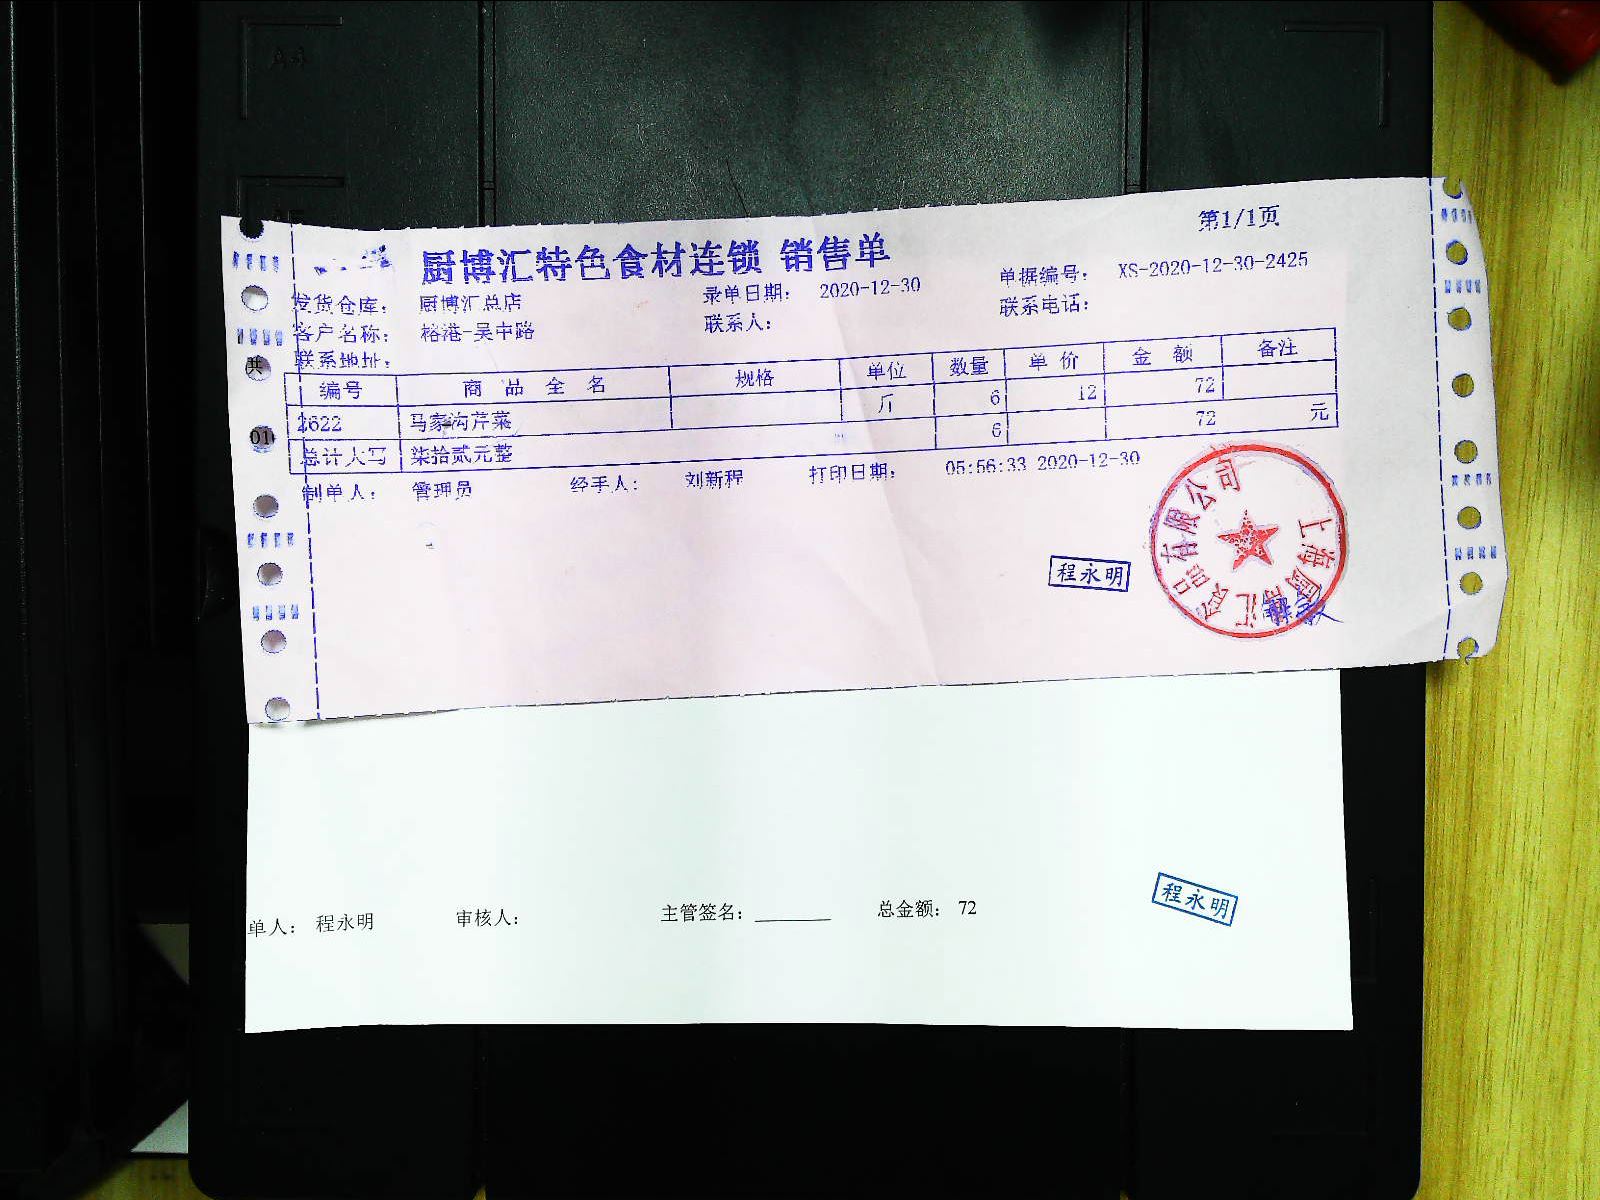 第1/1页
厨博汇特色食材连锁 销售单
发货仓库： 厨博汇总店 录单日期： 2020-12-30 单据编号： XS-2020-12-30-2425
客户名称： 榕港-吴中路 联系人： 联系电话：
联系地址：
编号 商 品 全 名 规格 单位 数量 单 价 金 额 备注
2622 马家沟芹菜 斤 6 12 72
总计大写 柒拾贰元整 6 72 元
制单人： 管理员 经手人： 刘新程 打印日期： 05:56:33 2020-12-30
共
01
程永明
上海厨博汇食品有限公司
单人： 程永明 审核人： 主管签名：________ 总金额： 72
程永明
A4